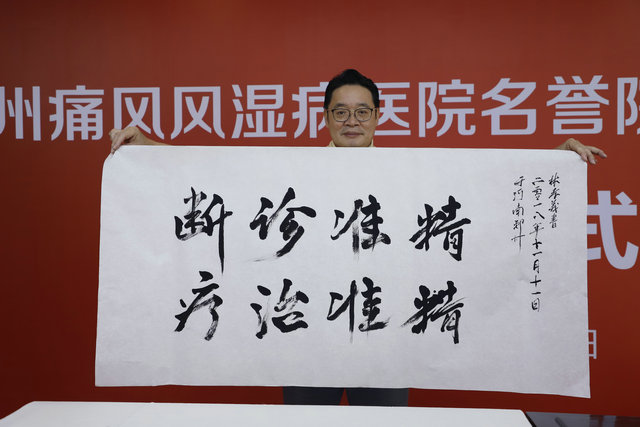 州痛风风湿病医院名誉院
式
日
精准诊断
精准治疗
林孝義書
二零一八年十一月十一日
于河南郑州